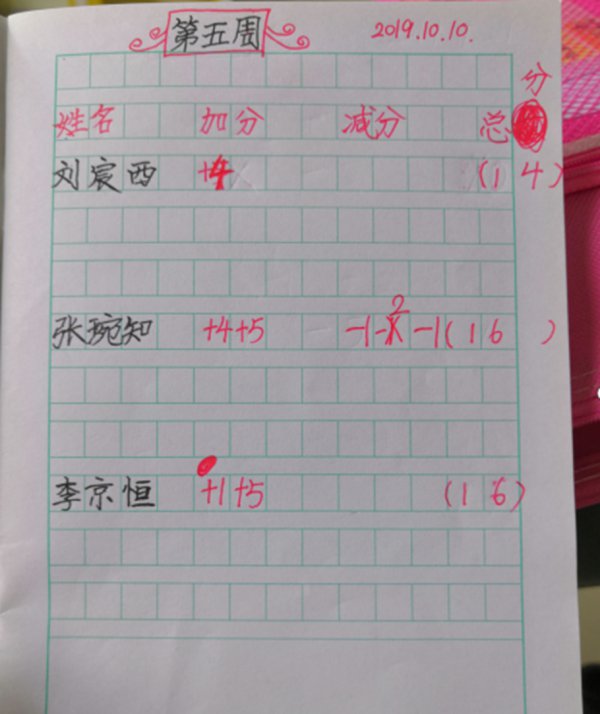 第五周 2019.10.10.
姓名 加分 减分 总分
刘宸西 +4 (14)
张琬知 +4+5 -1-2-1(16)
李京恒 +1+5 (16)